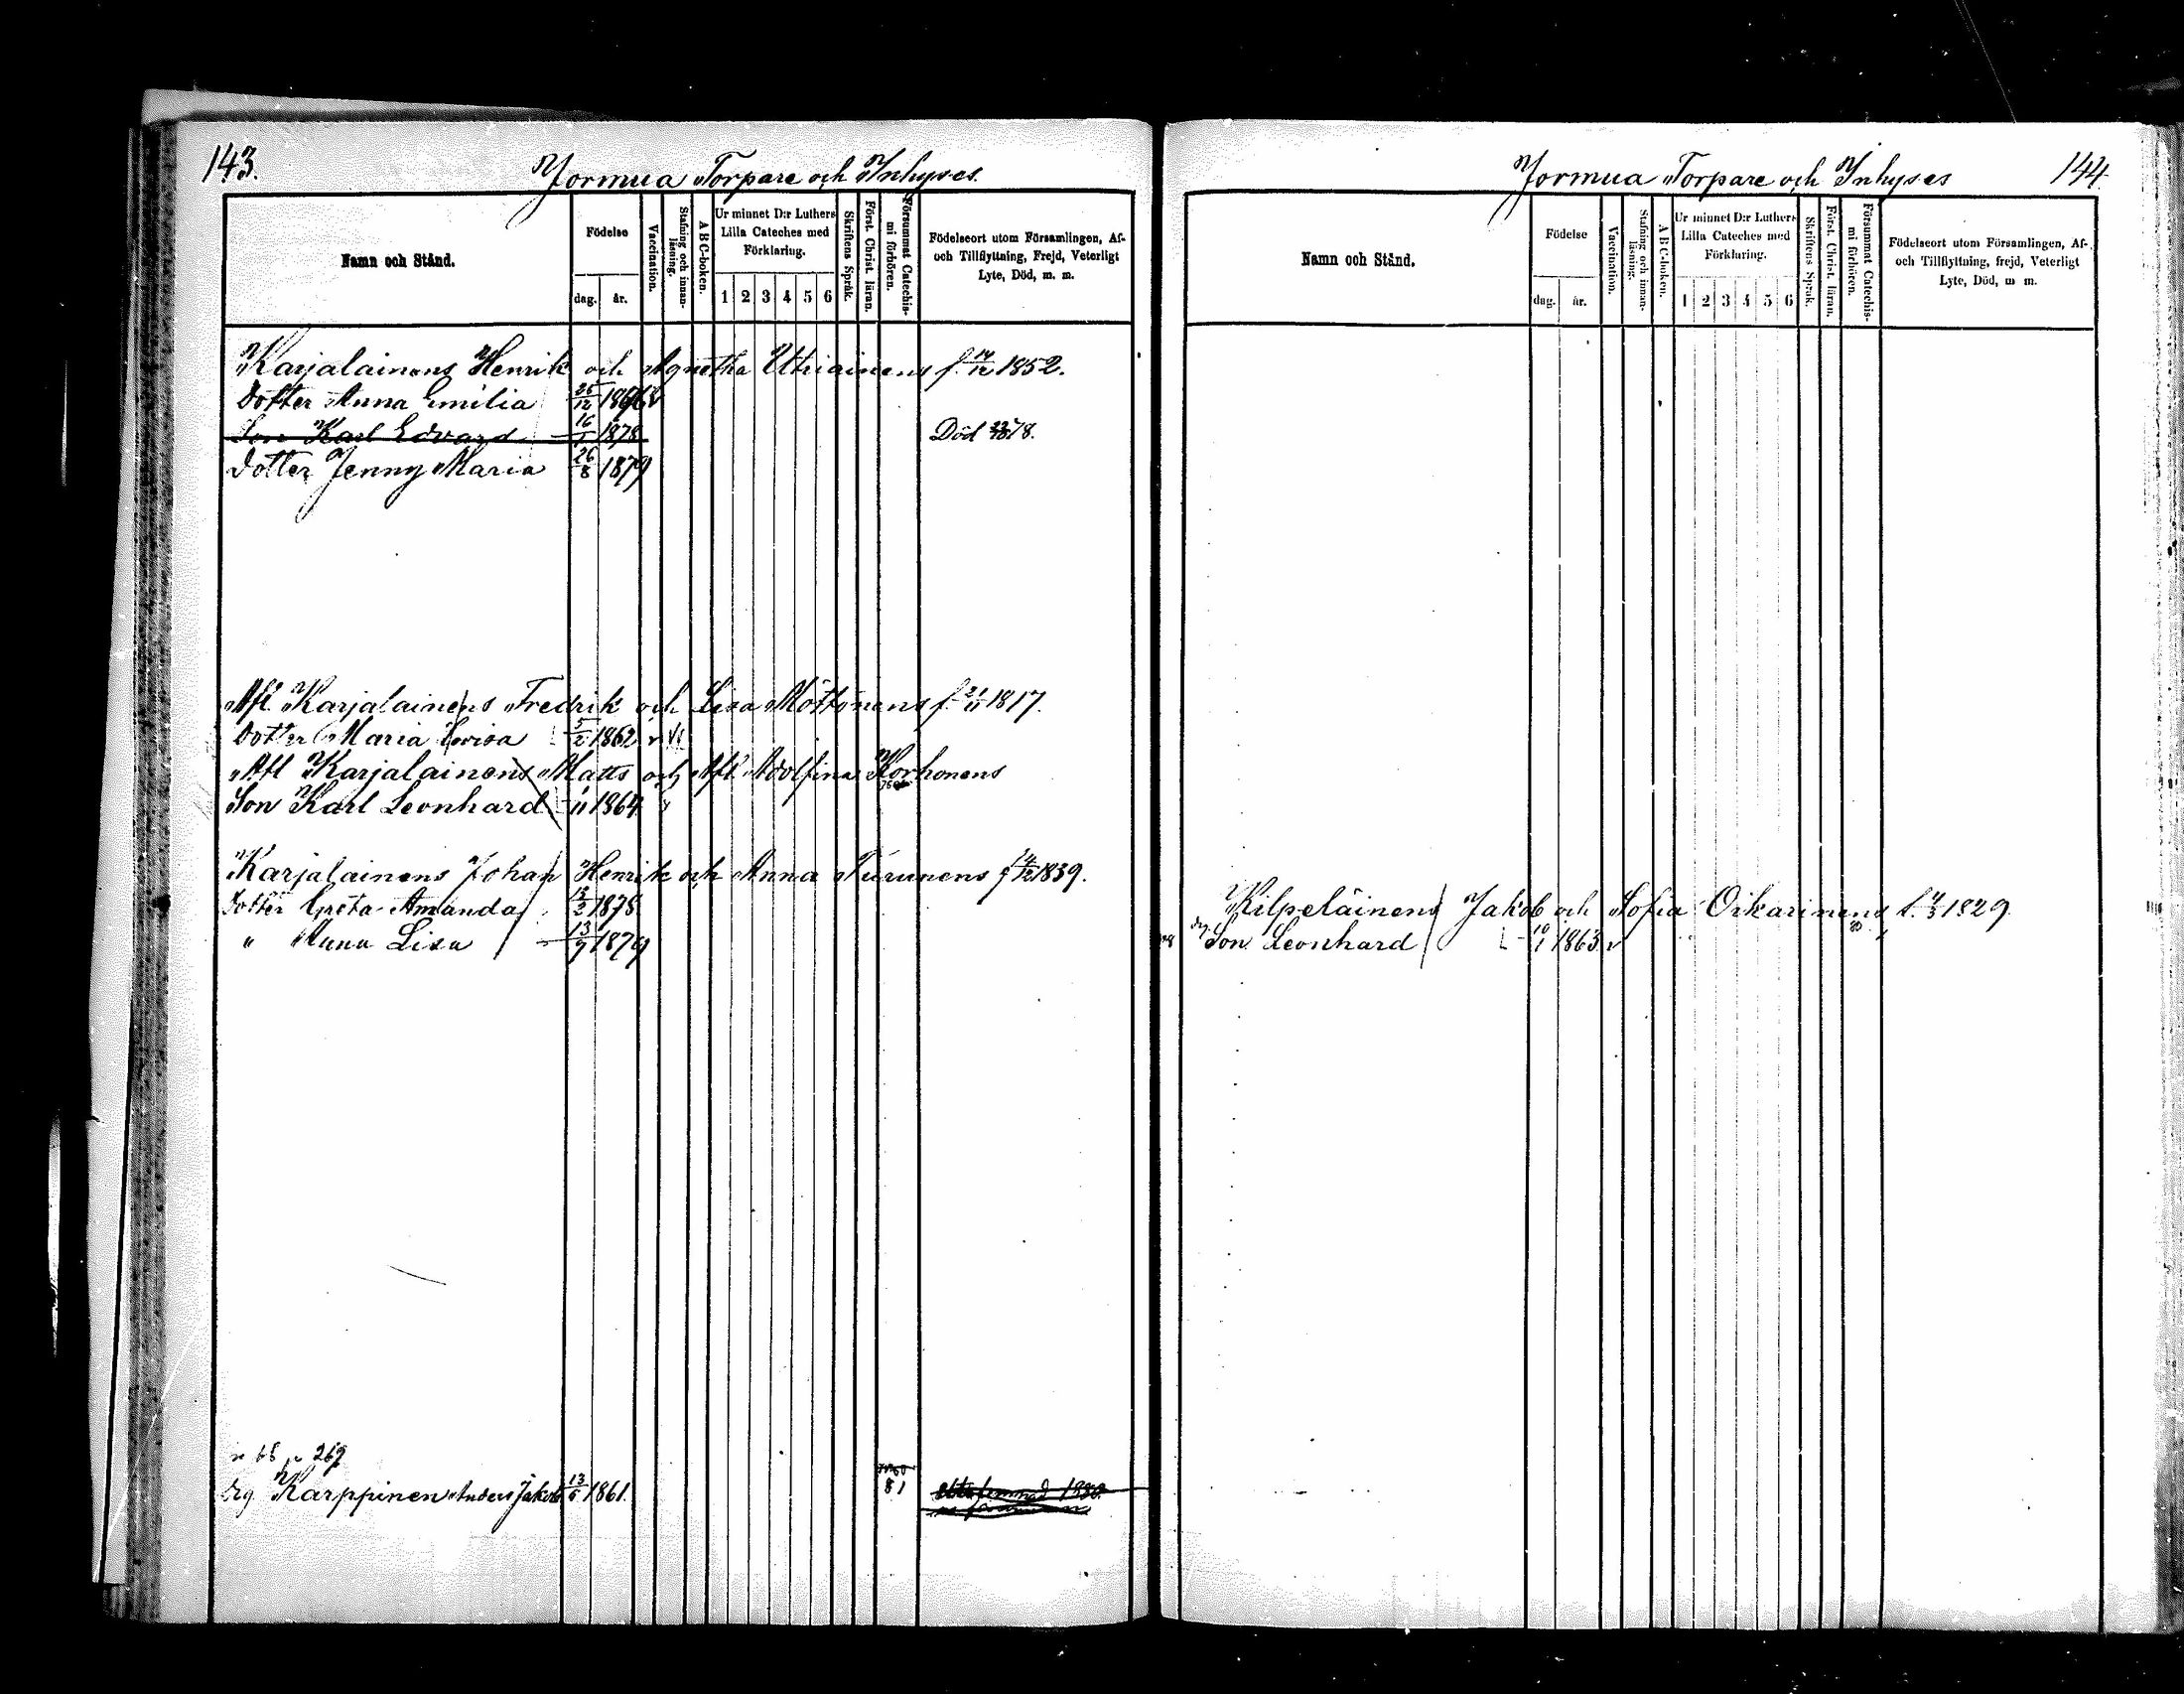 143.
Jormua Torpare och Inhyses.
Namn och Stånd.
Födelse
dag. år.
Vaccination.
Stafning och innanläsning.
A B C-boken.
Ur minnet D:r Luthers Lilla Cateches med Förklaring.
1 2 3 4 5 6
Skriftens Språk.
Först. Christ. läran.
Försummat Catechismi förhören.
Födelseort utom Församlingen, Af- och Tillflyttning, Frejd, Veterligt Lyte, Död, m. m.
Karjalainens Henrik och Agnetha Utriainens f. 14/12 1852.
Dotter Anna Emilia 25/12
Son Karl Edvard 16/1 1878 Död 78.
Dotter Jenny Maria 26/8 1879
Afl. Karjalainens Fredrik och Lisa Möttönens f. 21/11 1817.
Dotter Maria Lovisa 5/2 1862
Afl Karjalainens Matts och Afl. Adolfina Korhonens
Son Karl Leonhard 1/11 1864
Karjalainens Johan Henrik och Anna Turunens f 1839.
Dotter Greta Amanda 1878
" Anna Lisa 13/9 1879
n 68 p 269
Drg. Karppinen Anders Jakob 13/5 1861. 81
144.
Jormua Torpare och Inhyses
Namn och Stånd.
Födelse
dag. år.
Vaccination.
Stafning och innanläsning.
A B C-boken.
Ur minnet D:r Luthers Lilla Cateches med Förklaring.
1 2 3 4 5 6
Skriftens Språk.
Först. Christ. läran.
Försummat Catechismi förhören.
Födelseort utom Församlingen, Af- och Tillflyttning, frejd, Veterligt Lyte, Död, m m.
Kilpeläinens Jakob och Sofia Oikarinens f. 1829.
drg. Son Leonhard 10/1 1863